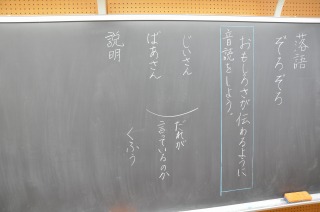 落語
ぞろぞろ
おもしろさが伝わるように
音読をしよう。
じいさん
ばあさん
だれが
言っているのか
くふう
説明